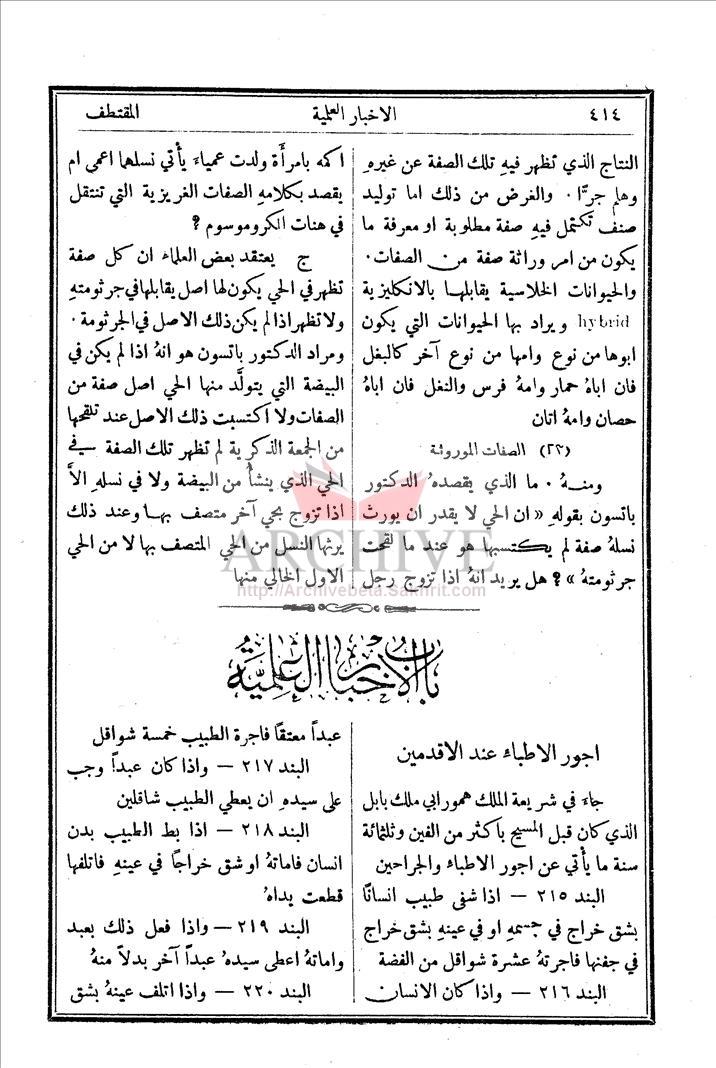 ٤١٤
الاخبار العلمية
المقتطف
النتاج الذي تظهر فيهِ تلك الصفة عن غيرهِ
وهلم جرّا . والغرض من ذلك اما توليد
صنف تكتمل فيهِ صفة مطلوبة او معرفة ما
يكون من امر وراثة صفة من الصفات .
والحيوانات الخلاسية يقابلها بالانكليزية
hybrid ويراد بها الحيوانات التي يكون
ابوها من نوع وامها من نوع آخر كالبغل
فان اباهُ حمار وامهُ فرس والنغل فان اباهُ
حصان وامهُ اتان
(٢٣) الصفات الموروثة
ومنهُ . ما الذي يقصدهُ الدكتور
باتسون بقولهِ « ان الحي لا يقدر ان يورث
نسلهُ صفة لم يكتسبها هو عند ما لقحت
جرثومتهُ » ? هل يريد انهُ اذا تزوج رجل
اكمه بامرأة ولدت عمياء يأتي نسلهما اعمى ام
يقصد بكلامهِ الصفات الغريزية التي تنتقل
في هنات الكروموسوم ?
ج يعتقد بعض العلماء ان كل صفة
تظهر في الحي يكون لها اصل يقابلها في جرثومتهِ
ولا تظهر اذا لم يكن ذلك الاصل في الجرثومة .
ومراد الدكتور باتسون هو انهُ اذا لم يكن في
البيضة التي يتولَّد منها الحي اصل صفة من
الصفات ولا اكتسبت ذلك الاصل عند تلقحها
من الجمعة الذكرية لم تظهر تلك الصفة في
الحي الذي ينشأُ من البيضة ولا في نسلهِ الاَّ
اذا تزوج بحي آخر متصف بها وعند ذلك
يرثها النسل من الحي المتصف بها لا من الحي
الاول الخالي منها
ARCHIVE
http://Archivebeta.Sakhrit.com
باب الاخبار العلمية
اجور الاطباء عند الاقدمين
جاء في شريعة الملك همورابي ملك بابل
الذي كان قبل المسيح باكثر من الفين وثلثمائة
سنة ما يأتي عن اجور الاطباء والجراحين
البند ٢١٥ — اذا شفى طبيب انسانًا
بشق خراج في جسمهِ او في عينهِ بشق خراج
في جفنها فاجرتهُ عشرة شواقل من الفضة
البند ٢١٦ — واذا كان الانسان
عبداً معتقاً فاجرة الطبيب خمسة شواقل
البند ٢١٧ — واذا كان عبداً وجب
على سيدهِ ان يعطي الطبيب شاقلين
البند ٢١٨ — اذا بط الطبيب بدن
انسان فاماتهُ او شق خراجًا في عينهِ فاتلفها
قطعت يداهُ
البند ٢١٩ — واذا فعل ذلك بعبد
واماتهُ اعطى سيدهُ عبداً آخر بدلاً منهُ
البند ٢٢٠ — واذا اتلف عينهُ بشق